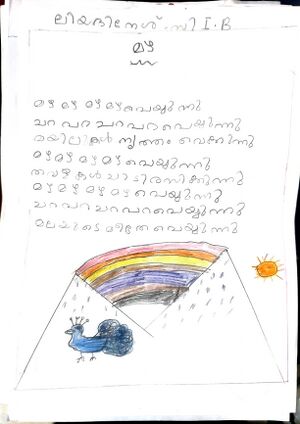 ലിയദിനേശ്.സി I.B
മഴ
മഴ മഴ മഴ മഴപെയ്യുന്നു
ചറ പറ ചറ പറ പെയ്യുന്നു
മയിലുകൾ നൃത്തം വെക്കുന്നു
മഴ മഴ മഴ മഴപെയ്യുന്നു
തവളകൾ ചാടിരസിക്കുന്നു
മഴ മഴ മഴ മഴ പെയ്യുന്നു
ചറ പറ ചറ പറ പെയ്യുന്നു
മലയുടെ മീതേ പെയ്യുന്നു